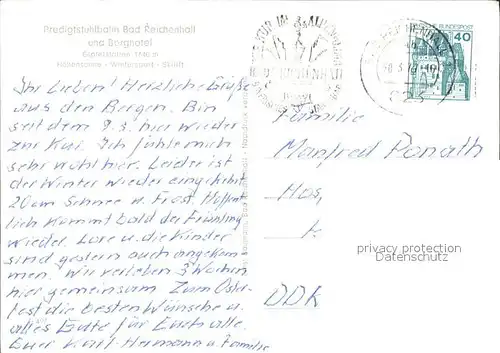 Predigtstuhlbahn Bad Reichenhall
und Berghotel
Gipfelstation 1640 m
Höhensonne - Wintersport - Skilift
Ihr Lieben! Herzliche Grüße
aus den Bergen. Bin
seit dem 9.3. hier wieder
zur Kur. Ich fühle mich
sehr wohl hier. Leider ist
der Winter wieder eingekehrt
20 cm Schnee u. Frost. Hoffent
lich kommt bald der Frühling
wieder. Lore u. die Kinder
sind gestern auch angekom
men. Wir verleben 3 Wochen
hier gemeinsam. Zum Oster-
fest die besten Wünsche u.
alles Gute für Euch alle.
Euer Karl-Hermann u. Familie
BUNDESPOST
40
Familie
Manfred Ponath
DDR
privacy protection
Datenschutz